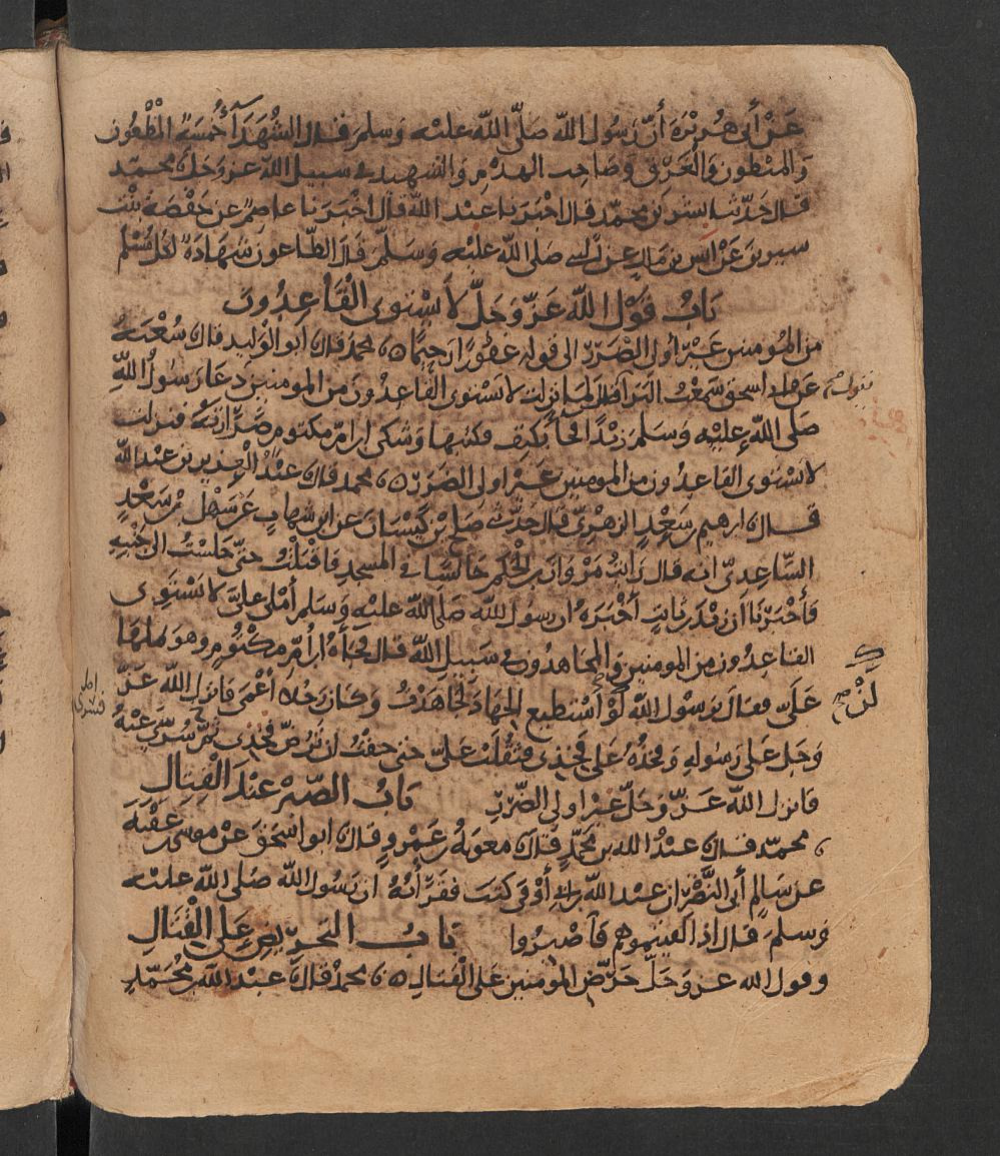 عَنْ أبى هُرَيْرَةَ أنّ رَسُول الله صَلَّى الله عليْه وَسلم قال الشُّهَدَآءُ خَمسَةٌ المَطْعُون
وَالمبْطون وَالْغَرِق وَصَاحِب الهدْمِ وَالشهيد فى سبيل الله عز وَجَلّ محمّد
قال حَدّثنا بشر بن محمّد قال اخبَرنا عبْد الله قال اخْبَرنا عاصِمٌ عن حَفْصَة بنْت
سيرين عَنْ انس بن مَالك عن النبى صَلى الله عليْه وَسَلّم قال الطّاعون شهَادَةٌ لكل مُسْلم
بَابُ قَوْل الله عَزّ وَجَلّ لا يَسْتوى الْقَاعِدُونَ
من المُومنين غَيْر اُولى الضَرَر الى قوله غفورًا رَحِيمًا محمد قال ابو الوَليد قال شُعْبَة
عَن ابى اسحق سَمعْتُ البَرآ يقول لمّا نزلت لا يسْتوى القاعدُونَ من المومنين دَعَا رَسُولُ اللهِ
صَلى اللهُ عليْهِ وَسَلم زيْدًا فجآ بكتِف فكتبها وَشَكى ابن امّ مكتومٍ ضَرَارته فنزلت
لا يسْتوى القاعِدُون من المومنين غيْر اولى الضَرَر محمد قال عبْد العزيز بن عبْد الله
قال ابرهيم بن سَعْدٍ الزهْرىّ قال حَدّثنى صَالح بْن كَيْسَان عَن ابن شهابٍ عَنْ سَهْل بْن سَعْدٍ
السّاعِدِىّ انه قال رَايْتُ مَرْوَانَ بْن الحكم جَالسًا فى المسجدِ فاقبَلْتُ حَتّى جَلسْتُ الى جَنْبِهِ
فَأخْبَرَنَا أن زيْد بن ثابتٍ أخبَرَهُ ان رسول الله صَلى الله عليْه وَسَلم أمْلى عليّ لا يَسْتَوِى
القاعِدُون من المومنين وَالمجَاهدُون فى سَبِيل اللهِ قال فجَاهُ ابن اُمّ مكْتُومٍ وهوَ يملهَا
عَلَىّ فقال يرسُول الله لَوْ أسْتطيع الجهَاد لجَاهَدْتُ وَكان رجُلا أعْمى فانزل الله عَزّ
وَجل عَلى رَسُولهِ وَفخذُهُ عَلى فخِذى فثقُلَتْ علىّ حَتى خفْتُ ان تَرُضّ فخِذى ثمّ سُرّىَ عَنْهُ
فانزل الله عَزّ وَجَلّ غيْر اولى الضّرَر بَابُ الصّبْر عنْدَ الْقِتال
محمّد قال عبْدُ الله بن محمّدٍ قال معوية بن عَمْرٍو قال ابو اسْحَق عَنْ موسَى بن عقْبَة
عن سَالم أبى النّضْر ان عبْد الله بن ابى أوْفى كتبَ فقرَأتهُ ان رَسُول الله صَلى الله عليْه
وَسلمَ قال اذا لقيتموهم فَاصْبرُوا بَابُ التحريض عَلى الْقتَالِ
وقول الله عز وَجَلّ حَرّض المومنين عَلى القتالِ محمد قال عبْد الله بن مُحَمّدٍ
يقول